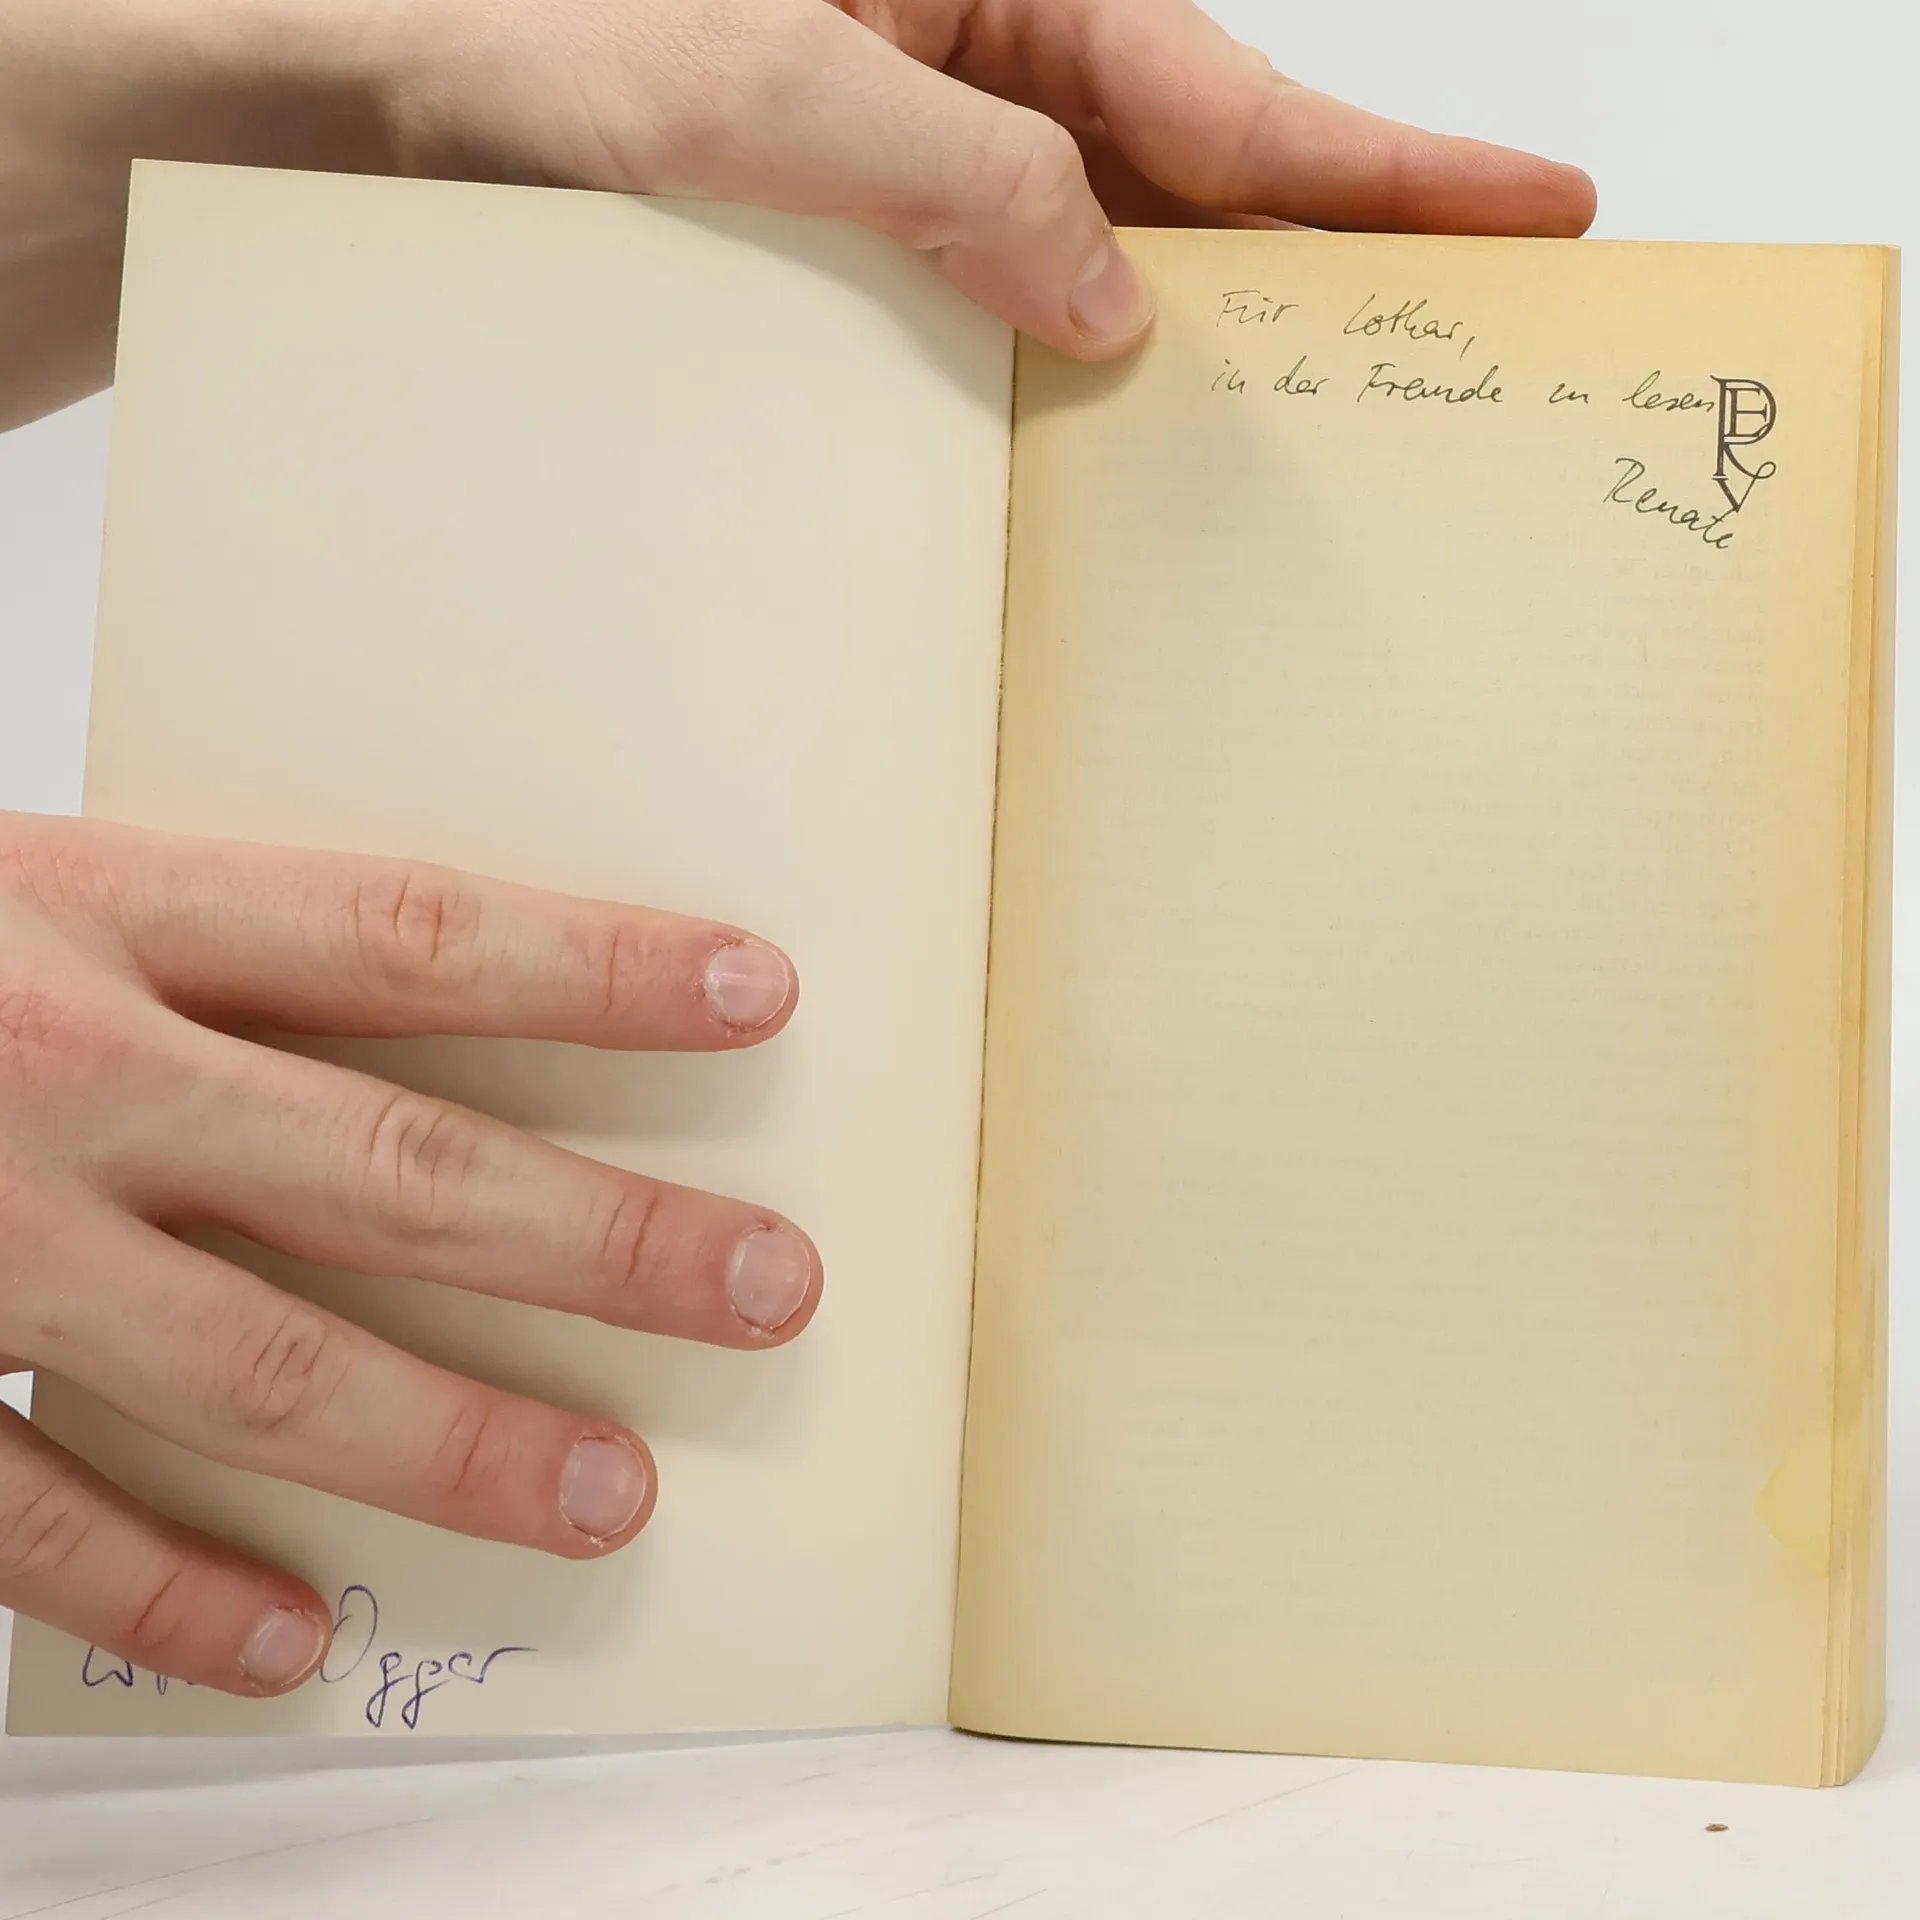 Ogger
Für Lothar,
in der Fremde zu lesen
Renate